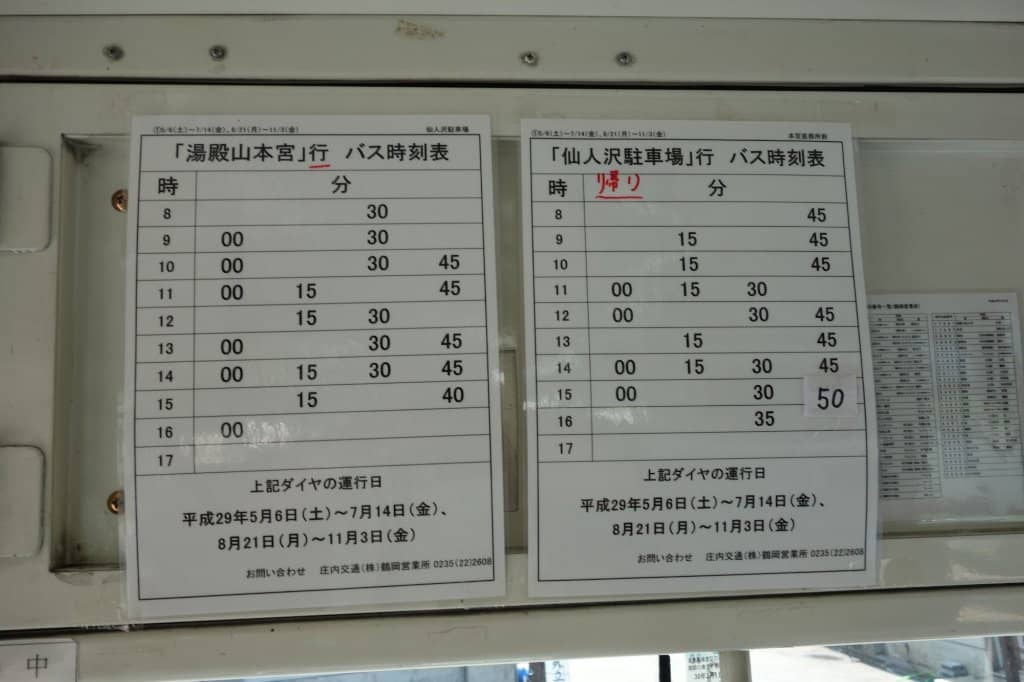 ①5/6(土)～7/14(金)、8/21(月)～11/3(金) 仙人沢駐車場
「湯殿山本宮」行 バス時刻表
時 分
8 30
9 00 30
10 00 30 45
11 00 15 45
12 15 30
13 00 30 45
14 00 15 30 45
15 15 40
16 00
17
上記ダイヤの運行日
平成29年5月6日(土)～7月14日(金)、
8月21日(月)～11月3日(金)
お問い合わせ 庄内交通(株)鶴岡営業所 0235(22)2608
①5/6(土)～7/14(金)、8/21(月)～11/3(金)
「仙人沢駐車場」行 バス時刻表
時 帰り 分
8 45
9 15 45
10 15 45
11 00 15 30
12 00 30 45
13 15 45
14 00 15 30 45
15 00 30 50
16 35
17
上記ダイヤの運行日
平成29年5月6日(土)～7月14日(金)、
8月21日(月)～11月3日(金)
お問い合わせ 庄内交通(株)鶴岡営業所 0235(22)2608
中